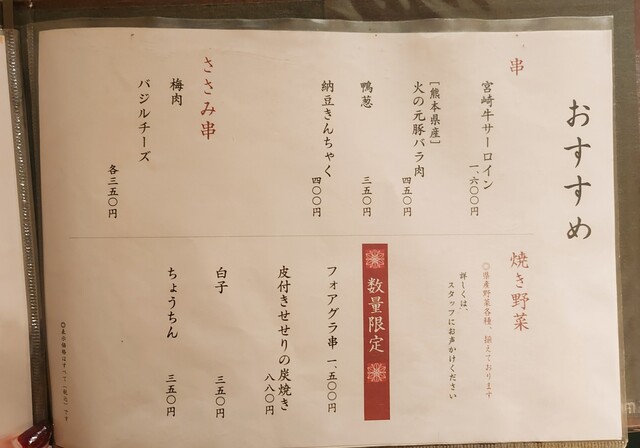 おすすめ
串
宮崎牛サーロイン 一、六〇〇円
[熊本県産]
火の元豚バラ肉 四五〇円
鴨葱 三五〇円
納豆きんちゃく 四〇〇円
ささみ串
梅肉
バジルチーズ
各三五〇円
焼き野菜
◎県産野菜各種、揃えております
詳しくは、
スタッフにお声かけください
数量限定
フォアグラ串 一、五〇〇円
皮付きせせりの炭焼き
八八〇円
白子 三五〇円
ちょうちん 三五〇円
◎表示価格はすべて(税込)です